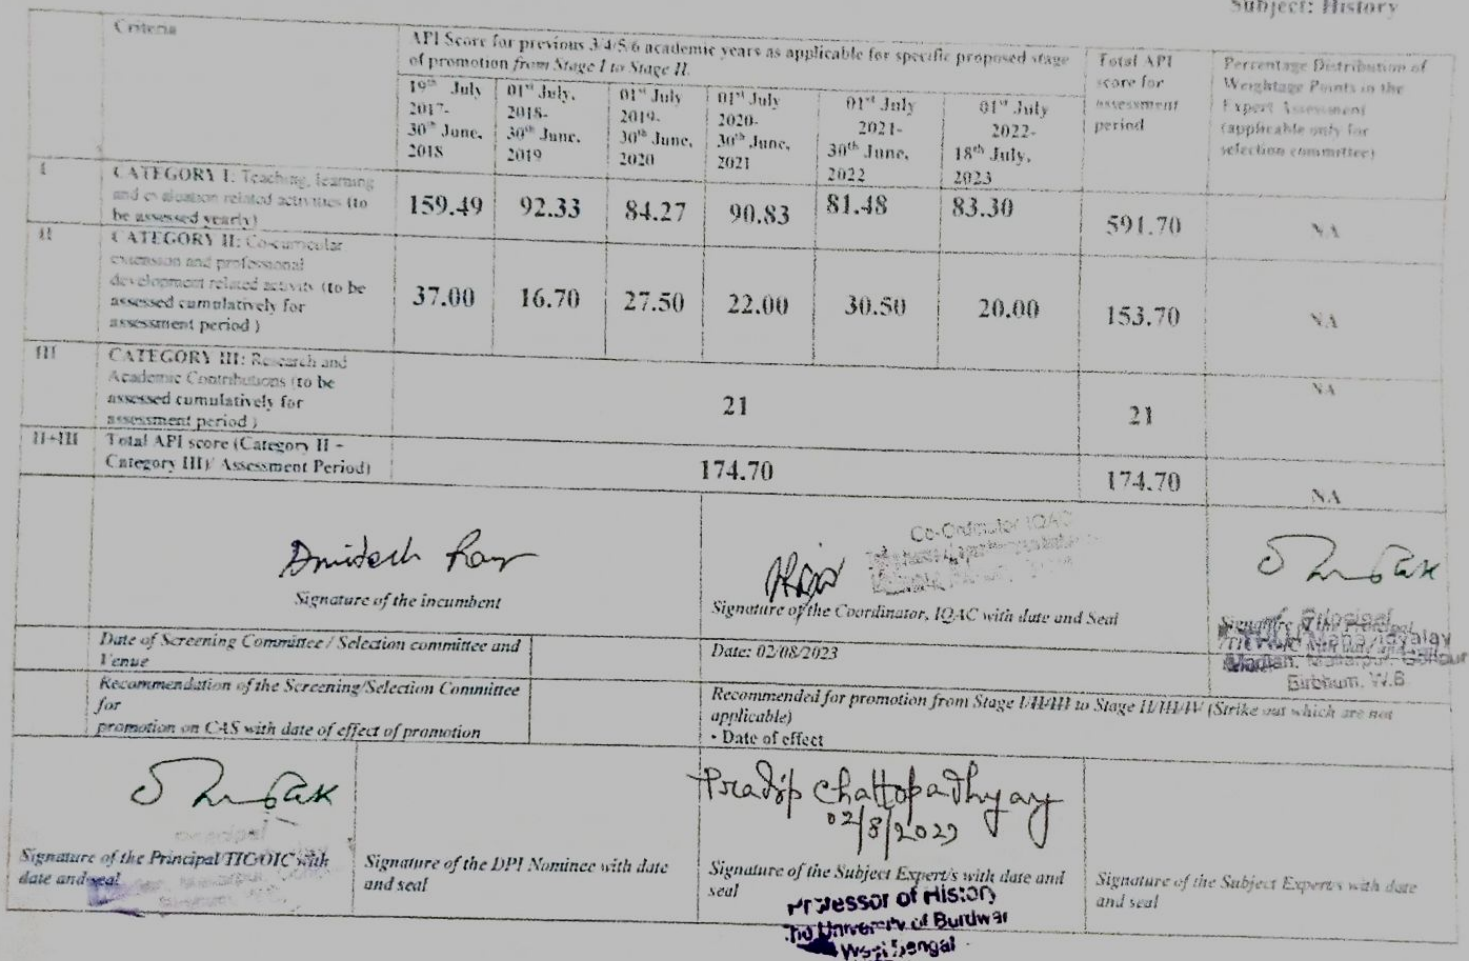 Subject: History
Criteria
API Score for previous 3/4/5/6 academic years as applicable for specific proposed stage
of promotion from Stage I to Stage II.
Total API
score for
assessment
period
Percentage Distribution of
Weightage Points in the
Expert Assessment
(applicable only for
selection committee)
19th July
2017-
30th June,
2018
01st July,
2018-
30th June,
2019
01st July
2019-
30th June,
2020
01st July
2020-
30th June,
2021
01st July
2021-
30th June,
2022
01st July
2022-
18th July,
2023
I
CATEGORY I: Teaching, learning
and evaluation related activities (to
be assessed yearly)
159.49
92.33
84.27
90.83
81.48
83.30
591.70
NA
II
CATEGORY II: Co-curricular
extension and professional
development related activity (to be
assessed cumulatively for
assessment period )
37.00
16.70
27.50
22.00
30.50
20.00
153.70
NA
III
CATEGORY III: Research and
Academic Contributions (to be
assessed cumulatively for
assessment period )
21
21
NA
II+III
Total API score (Category II -
Category III)/ Assessment Period)
174.70
174.70
NA
Signature of the incumbent
Co-Ordinator IQAC
Signature of the Coordinator, IQAC with date and Seal
Principal
Signature of the Principal
Mahavidyalay
Birbhum, W.B.
Date of Screening Committee / Selection committee and
Venue
Date: 02/08/2023
Recommendation of the Screening/Selection Committee
for
promotion on CAS with date of effect of promotion
Recommended for promotion from Stage I/II/III to Stage II/III/IV (Strike out which are not
applicable)
- Date of effect
Principal
Signature of the Principal/TIC/OIC with
date and seal
Signature of the DPI Nominee with date
and seal
Pradip Chattopadhyay
02/8/2023
Signature of the Subject Expert/s with date and
seal
Professor of History
The University of Burdwan
West Bengal
Signature of the Subject Expert/s with date
and seal